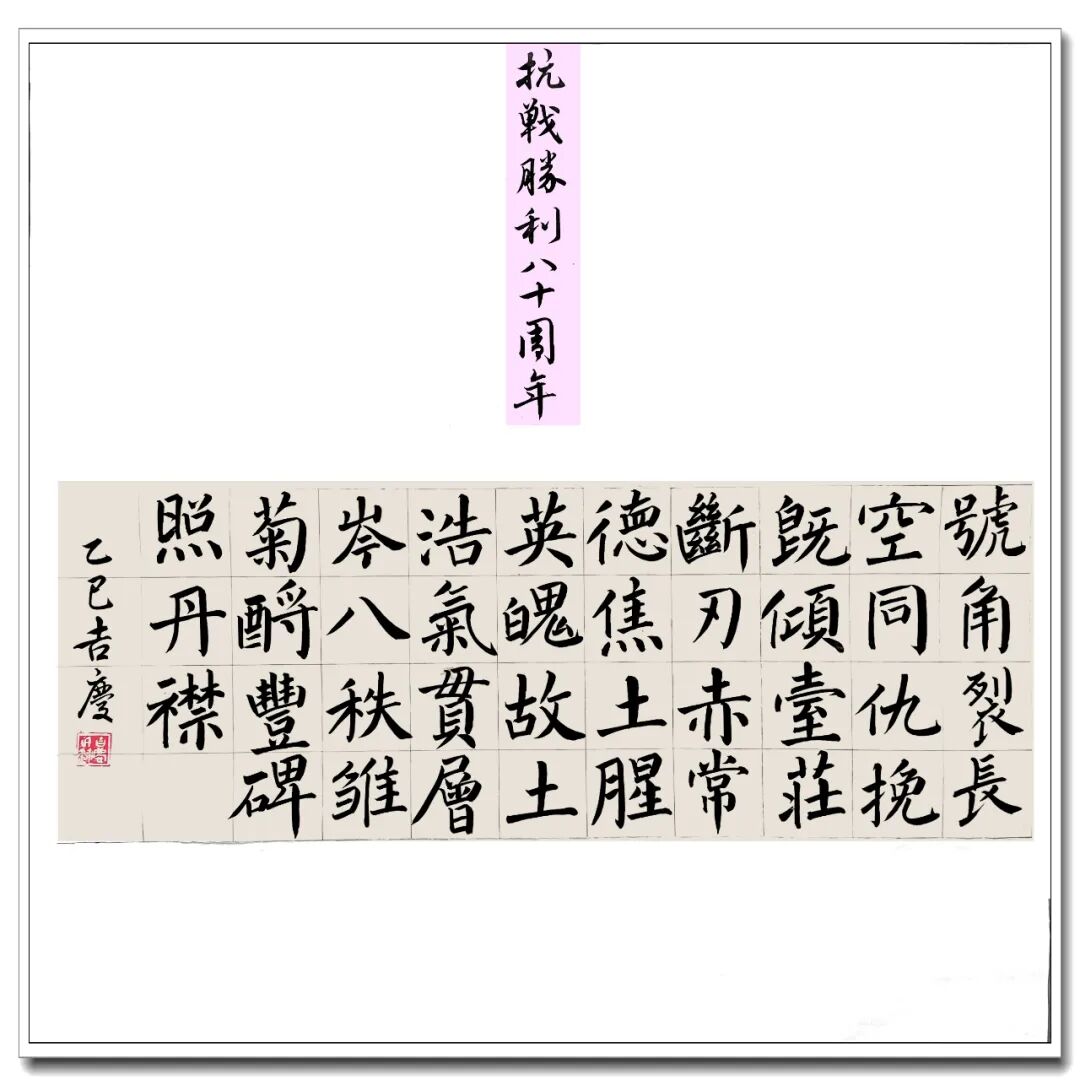 抗戦勝利八十周年
號角裂長
空同仇挽
既傾臺莊
斷刃赤常
德焦土腥
英魄故土
浩氣貫層
岑八秩雏
菊酹豐碑
照丹襟
乙巳吉慶